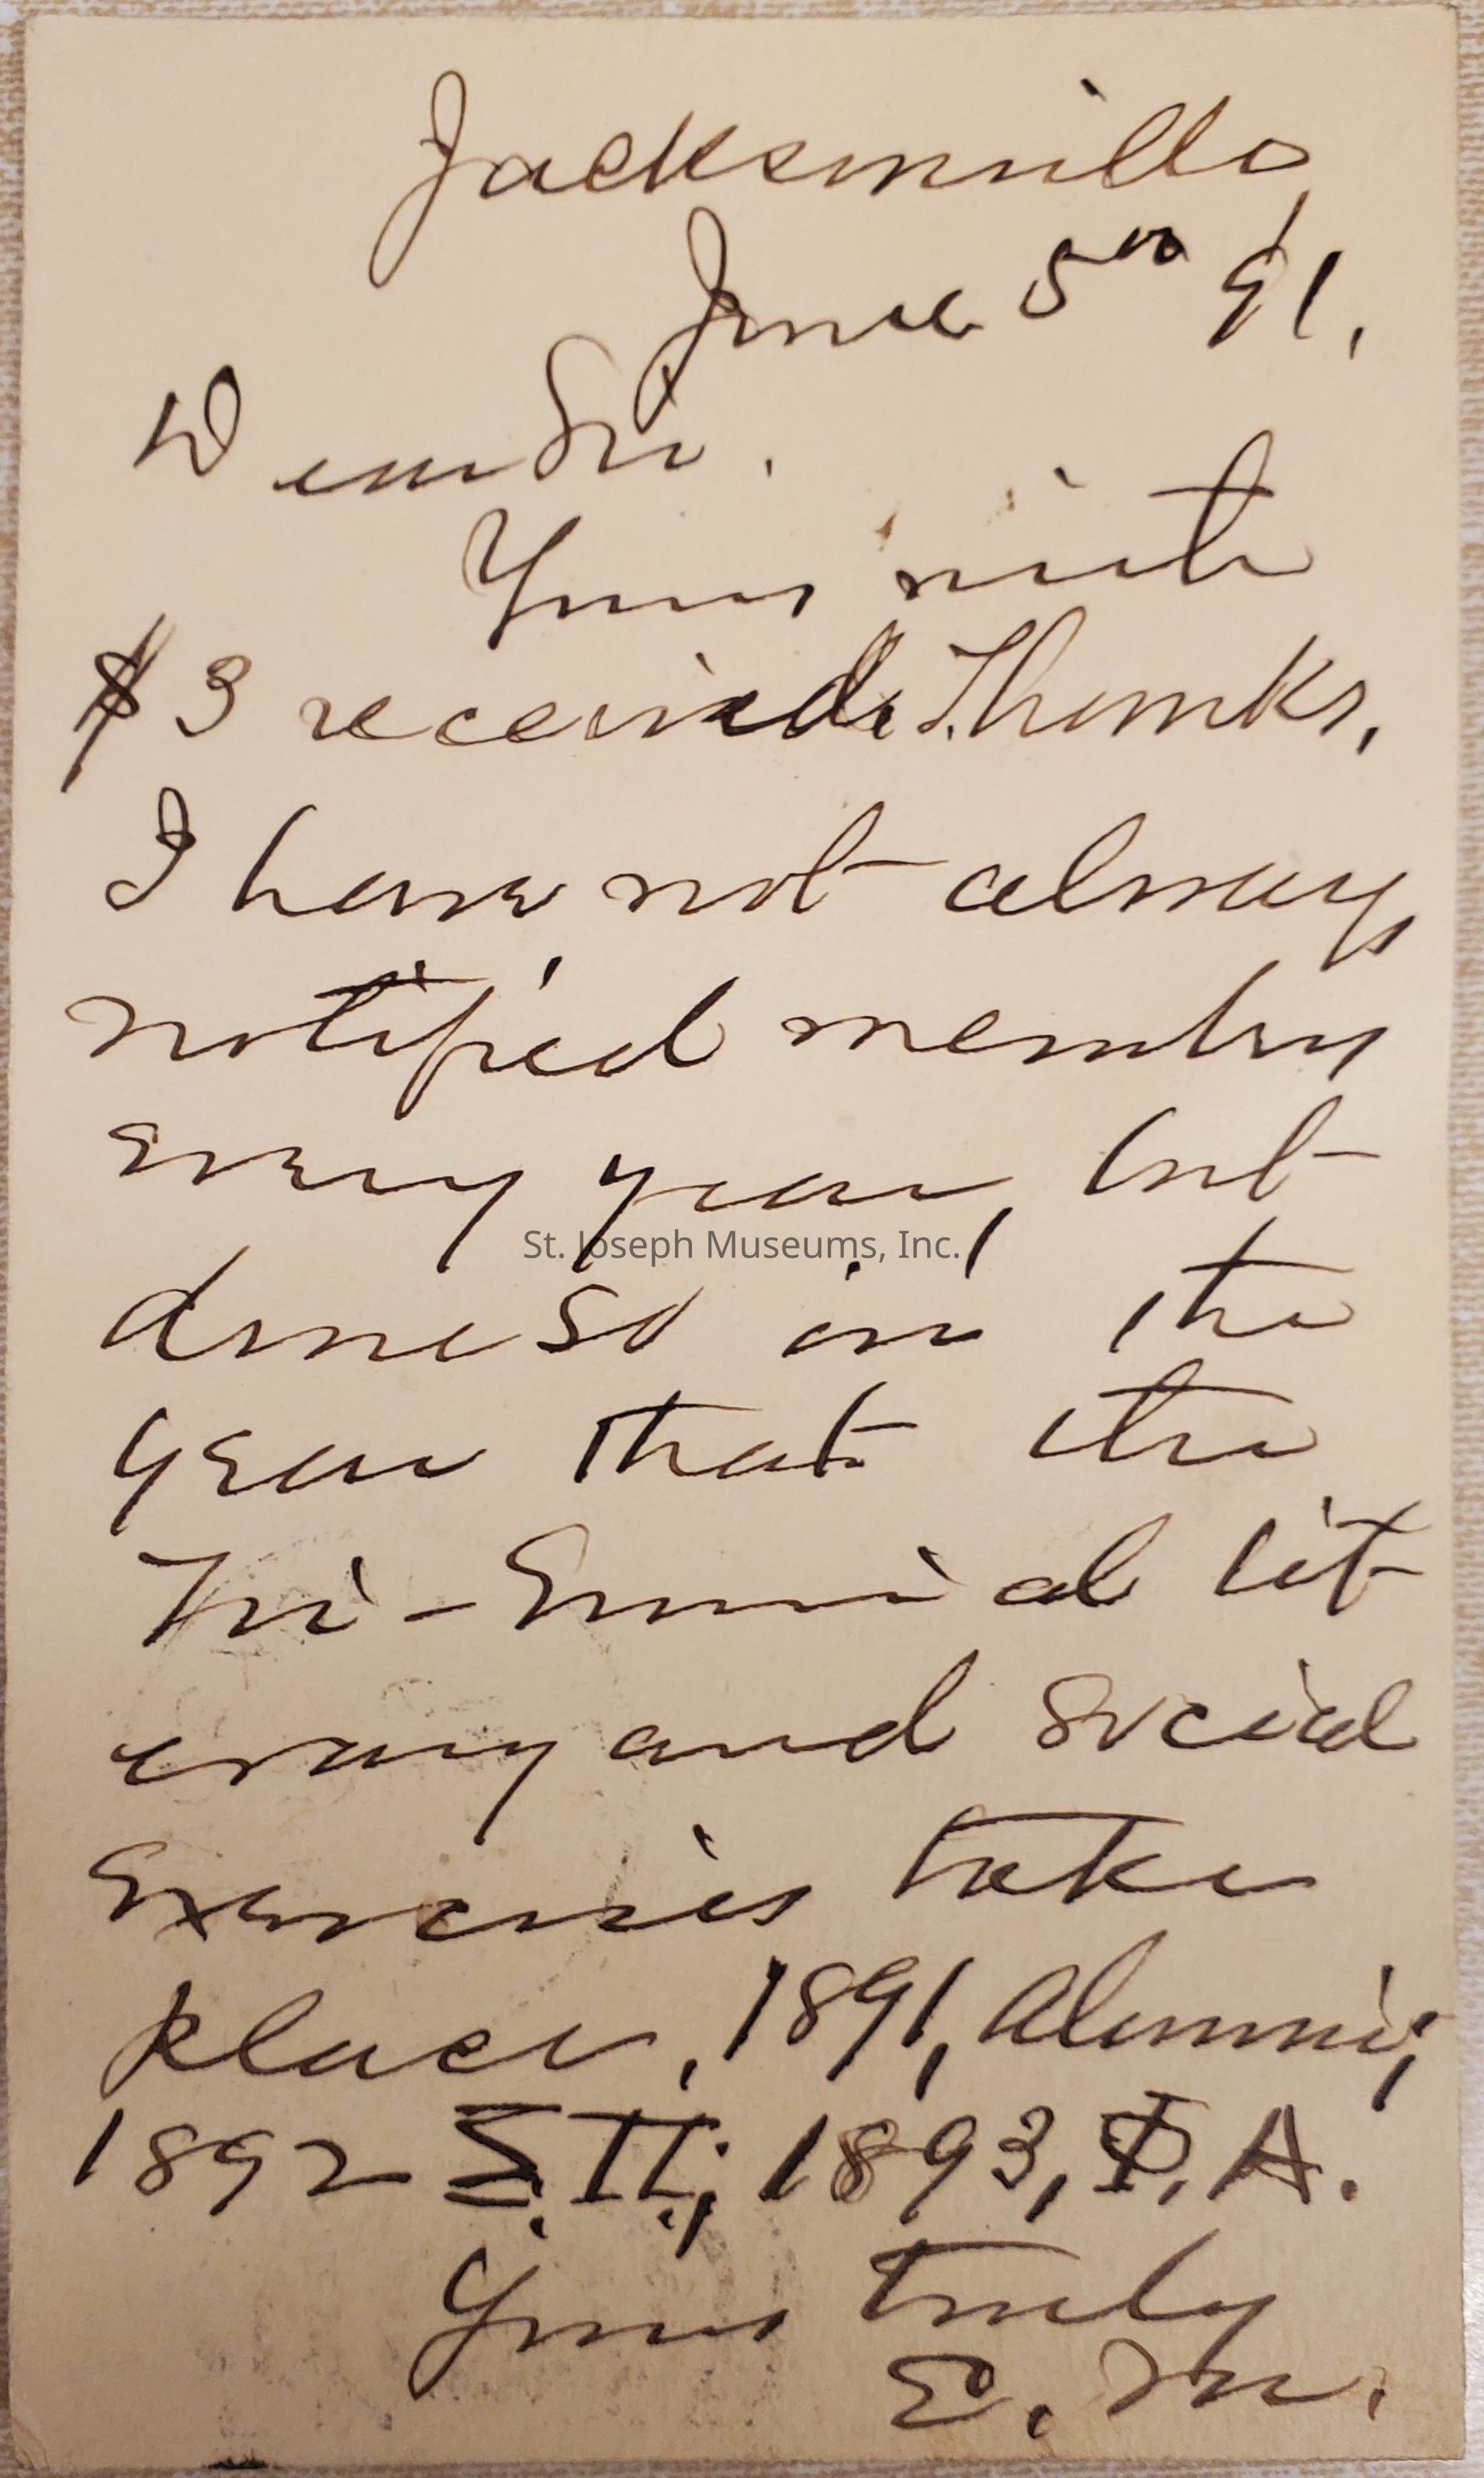 Jacksonville
June 5th 91.
Dear Sir.
Yours with
$3 received. Thanks,
I have not always
notified members
every year, but
done so in the
year that the
Tri-Ennial lit
erary and social
Exercises take
place, 1891, Alumni;
1892 Σ.Π.; 1893, Φ, A.
Yours truly
E. M.
St. Joseph Museums, Inc.